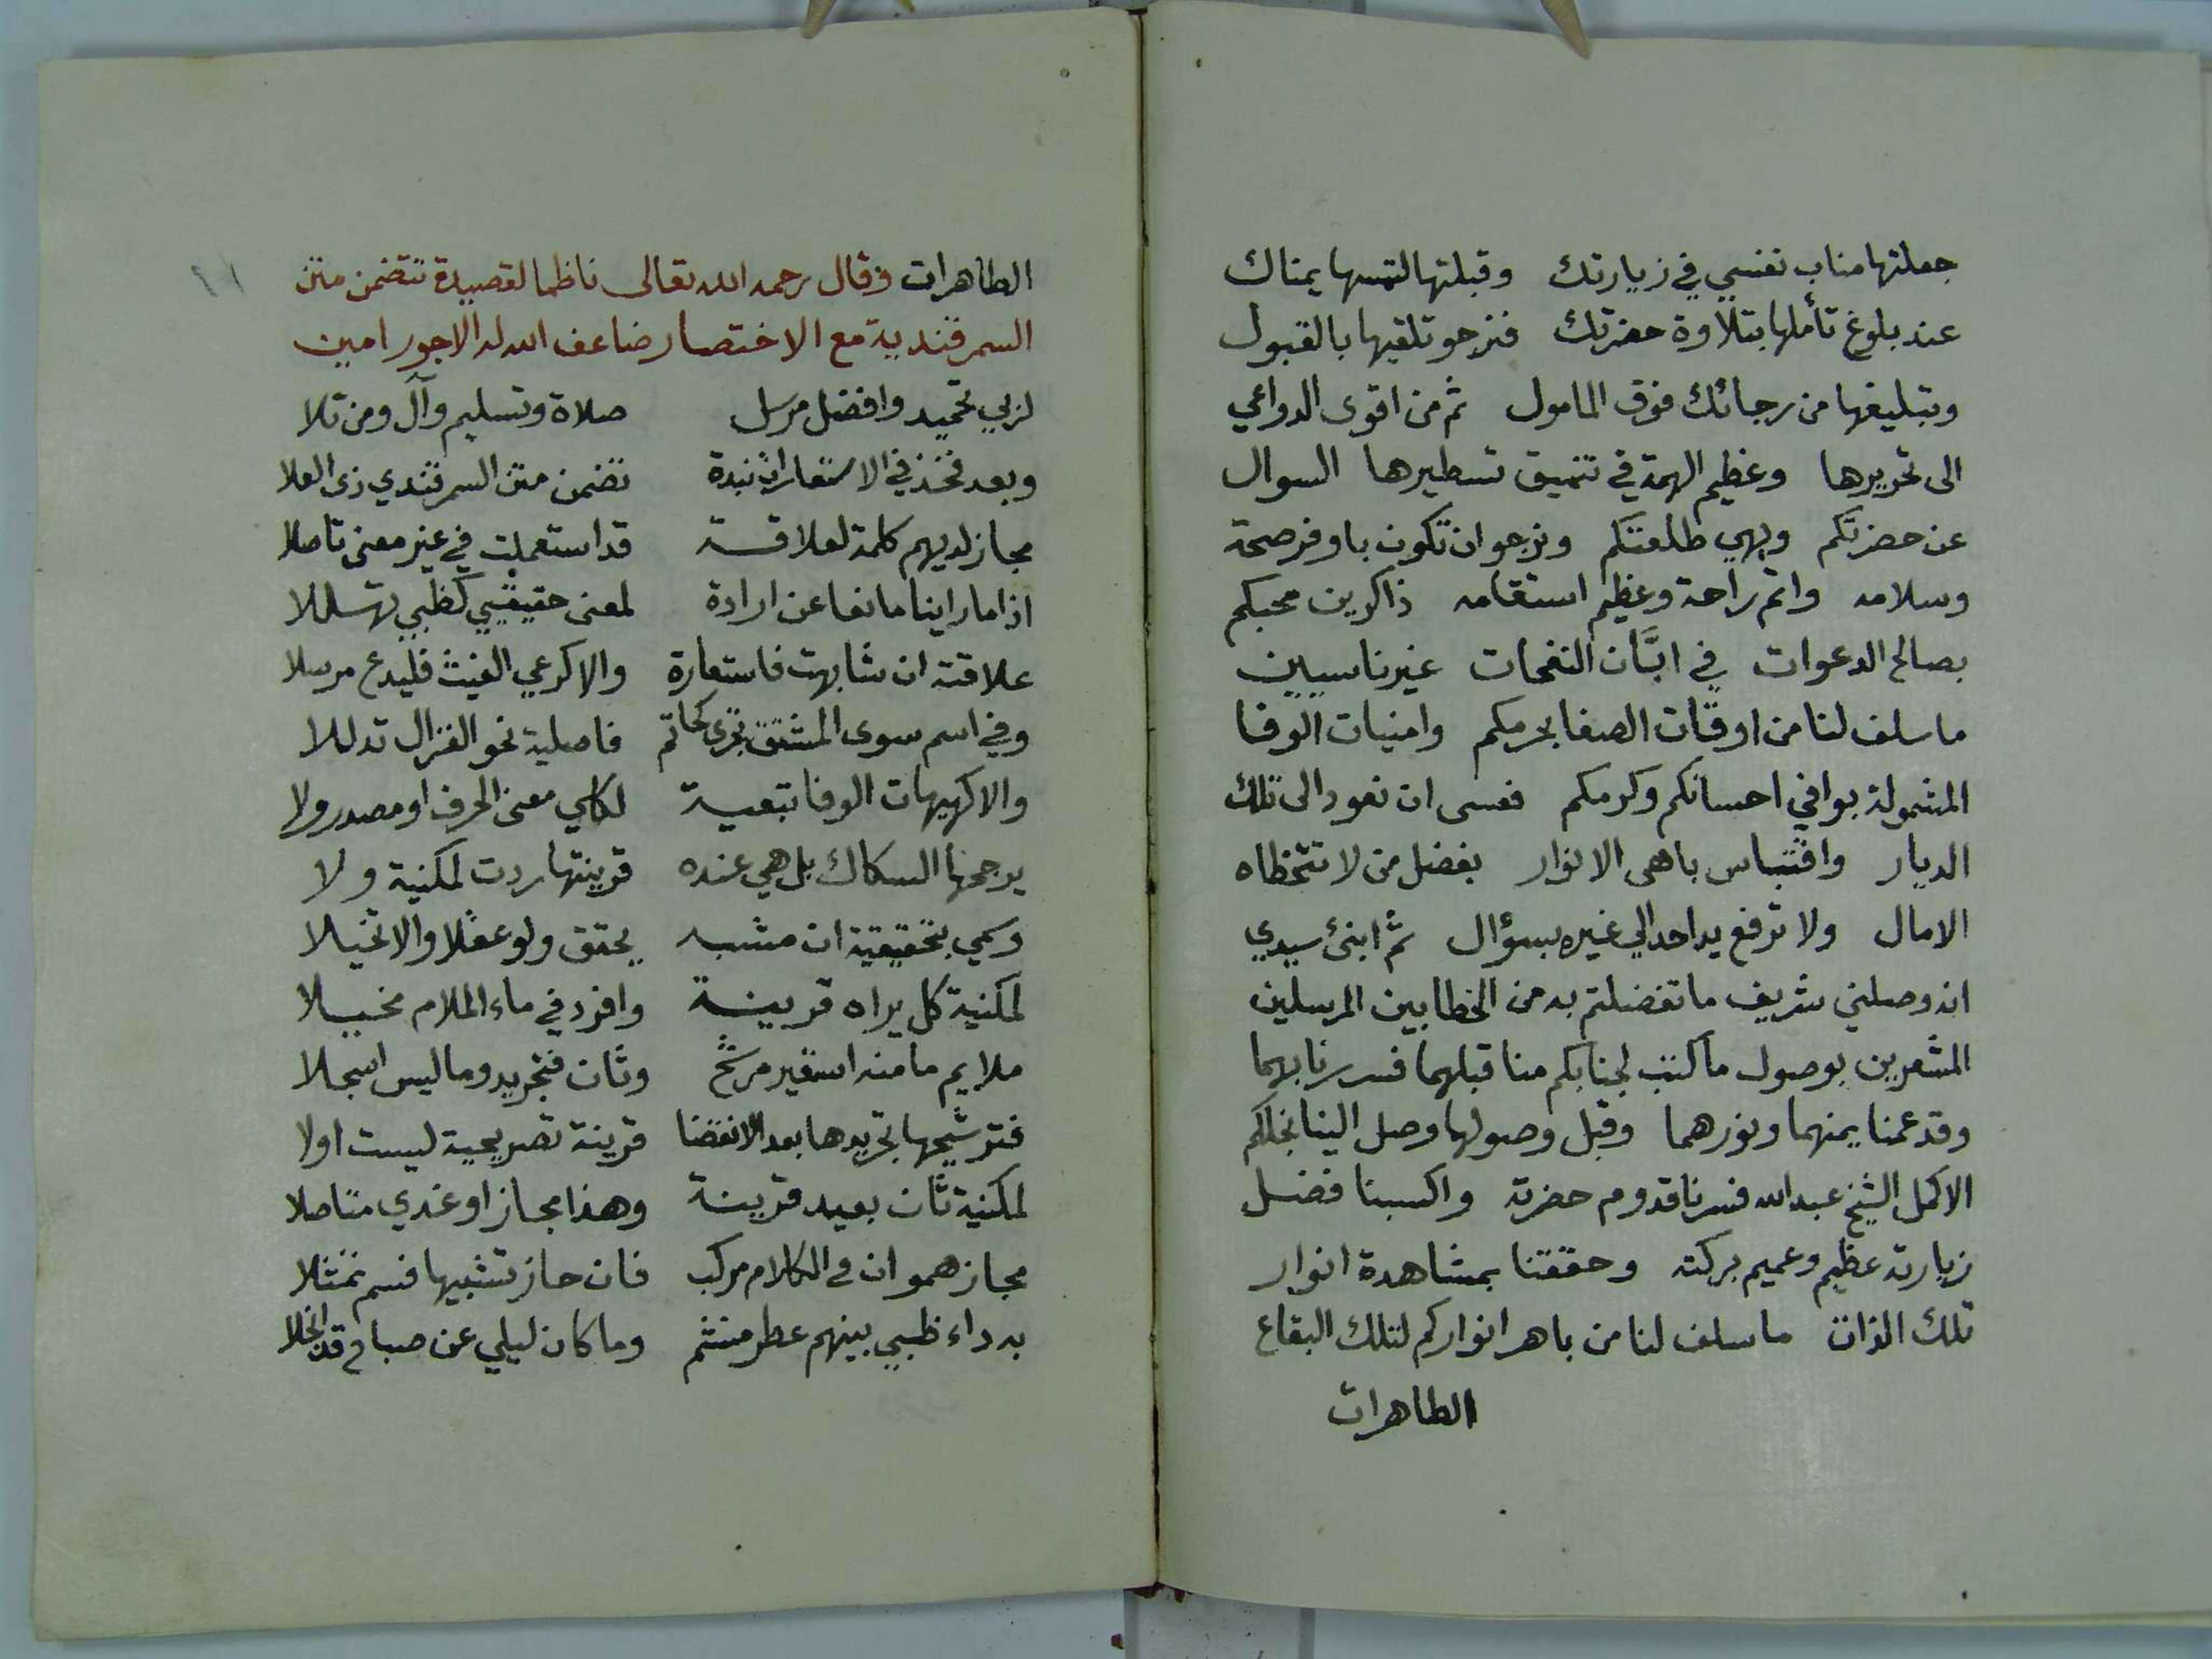 جعلتها مناب نفسي في زيارتك وقبلتها لتمسها يمناك
عند بلوغ تأملها بتلاوة حضرتك فنرجو تلقيها بالقبول
وتبليغها من رجائك فوق المامول ثم من اقوى الدواعي
الى تحريرها وعظيم الهمة في تنميق تسطيرها السوال
عن حضرتكم وبهي طلعتكم ونرجو ان تكون باوفر صحة
وسلامه واتم راحة وعظيم استقامه ذاكرين محبكم
بصالح الدعوات في ابَّان النفحات غير ناسيين
ما سلف لنا من اوقات الصفا بحرمكم وامنيات الوفا
المشمولة بوافي احسانكم وكرمكم فعسى ان نعود الى تلك
الديار واقتباس باهى الانوار بفضل من لا تتخطاه
الامال ولا ترفع يد احد الي غيره بسؤال ثم ابنئ سيدي
انه وصلني شريف ما تفضلتم به من الخطابين المرسلين
المشعرين بوصول ما كتب لجنابكم منا قبلهما فسررنا بهما
وقد عمنا يمنهما ونورهما وقبل وصولها وصل الينا نجلكم
الاكمل الشيخ عبد الله فسرنا قدوم حضرته واكسبنا فضل
زيارته عظيم وعميم بركته وحققنا بمشاهدة انوار
تلك الذات ما سلف لنا من باهر انواركم لتلك البقاع
الطاهرات
الطاهرات وقال رحمه الله تعالى ناظما لقصيدة تتضمن متن
السمرقندية مع الاختصار ضاعف الله له الاجور امين
لربي تحميد وافضل مرسل صلاة وتسليم وآل ومن تلا
وبعد فخذ في الاستعارات نبذة تضمن متن السمرقندي ذى العلا
مجاز لديهم كلمة لعلاقة قد استعملت في غير معنى تاصلا
اذا ما راينا مانعا عن ارادة لمعنى حقيقيي كظبي تهللا
علاقته ان شابهت فاستعارة والا كرعي الغيث فليدع مرسلا
وفي اسم سوى المشتق تجرى كحاتم فاصلية نحو الغزال تدللا
والا كهيهات الوفا تبعية لكلي معنى الحرف او مصدر ولا
يرجحها السكاك بل هي عنده قرينتها ردت لمكنية ولا
وسمي بتحقيقية ان مشبه يحقق ولو عقلا والا تخيلا
لمكنية كل يراه قرينة وافرد في ماء الملام مخيلا
ملايم ما منه استعير مرشح وثان فتجريد وما ليس اسجلا
فترشيحها تجريدها بعد الانقضا قرينة تصريحية ليست اولا
لمكنية ثان بعيد قرينة وهذا مجاز او غدي متاصلا
مجازهمو ان في الكلام مركب فان حاز تشبيها فسم تمثلا
به داء ظبي بينهم عطر منشم وما كان ليلي عن صباح قد انجلا